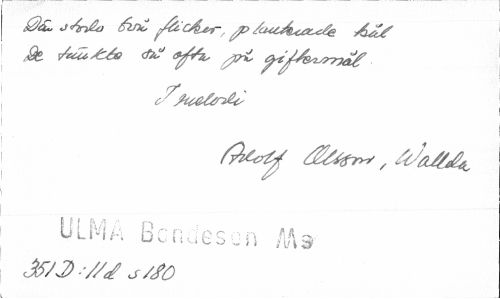 Där stodo två flickor, planterade kål
De tänkte så ofta på giftermål.
1 melodi
Adolf Olsson, Wallda
ULMA Bondeson Ms
351 D:11d s 180